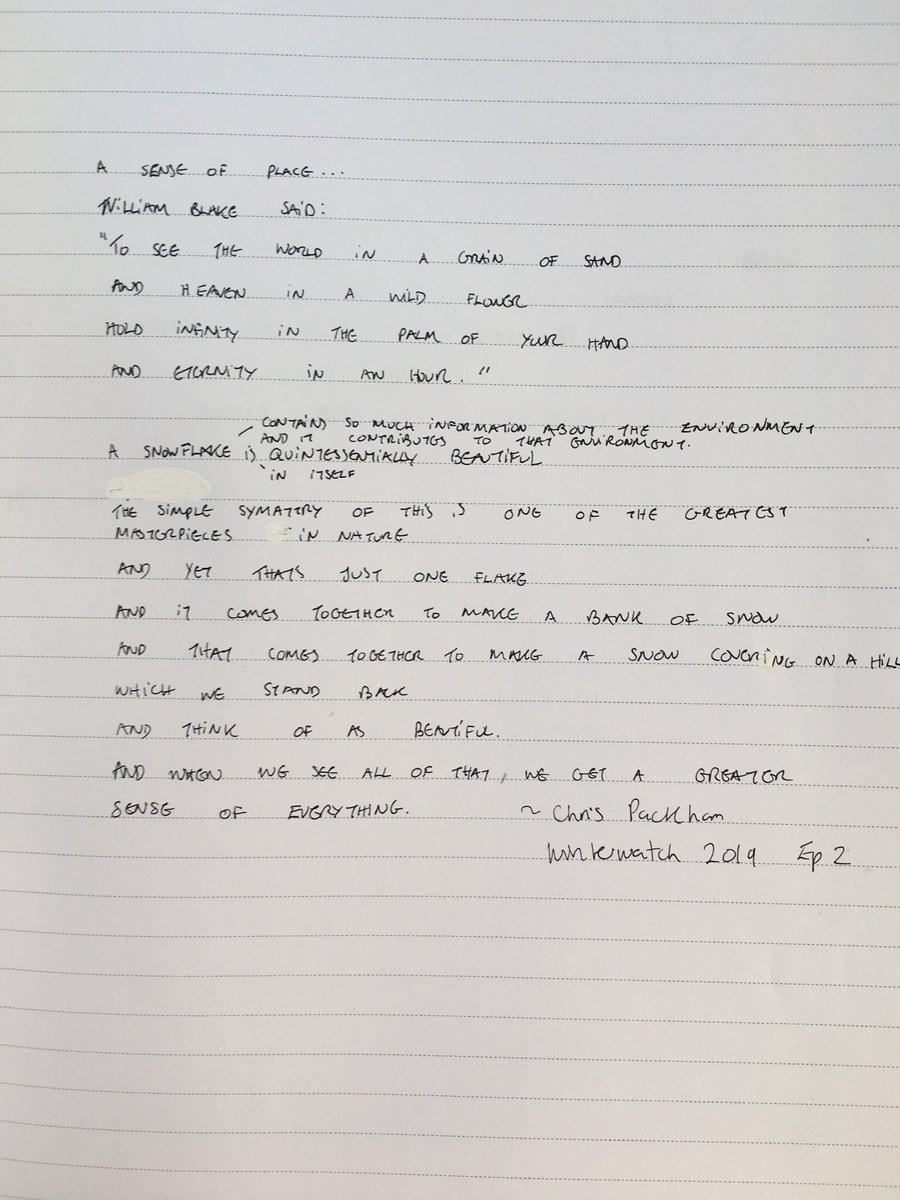 A SENSE OF PLACE...
WILLIAM BLAKE SAID:
"TO SEE THE WORLD IN A GRAIN OF SAND
AND HEAVEN IN A WILD FLOWER
HOLD INFINITY IN THE PALM OF YOUR HAND
AND ETERNITY IN AN HOUR."
CONTAINS SO MUCH INFORMATION ABOUT THE ENVIRONMENT
AND IT CONTRIBUTES TO THAT ENVIRONMENT.
A SNOWFLAKE IS QUINTESSENTIALLY BEAUTIFUL
IN ITSELF
THE SIMPLE SYMATTRY OF THIS IS ONE OF THE GREATEST
MASTERPIECES IN NATURE
AND YET THATS JUST ONE FLAKE
AND IT COMES TOGETHER TO MAKE A BANK OF SNOW
AND THAT COMES TOGETHER TO MAKE A SNOW COVERING ON A HILL
WHICH WE STAND BACK
AND THINK OF AS BEAUTIFUL.
AND WHEN WE SEE ALL OF THAT, WE GET A GREATER
SENSE OF EVERYTHING. ~ Chris Packham
Winterwatch 2019 Ep 2